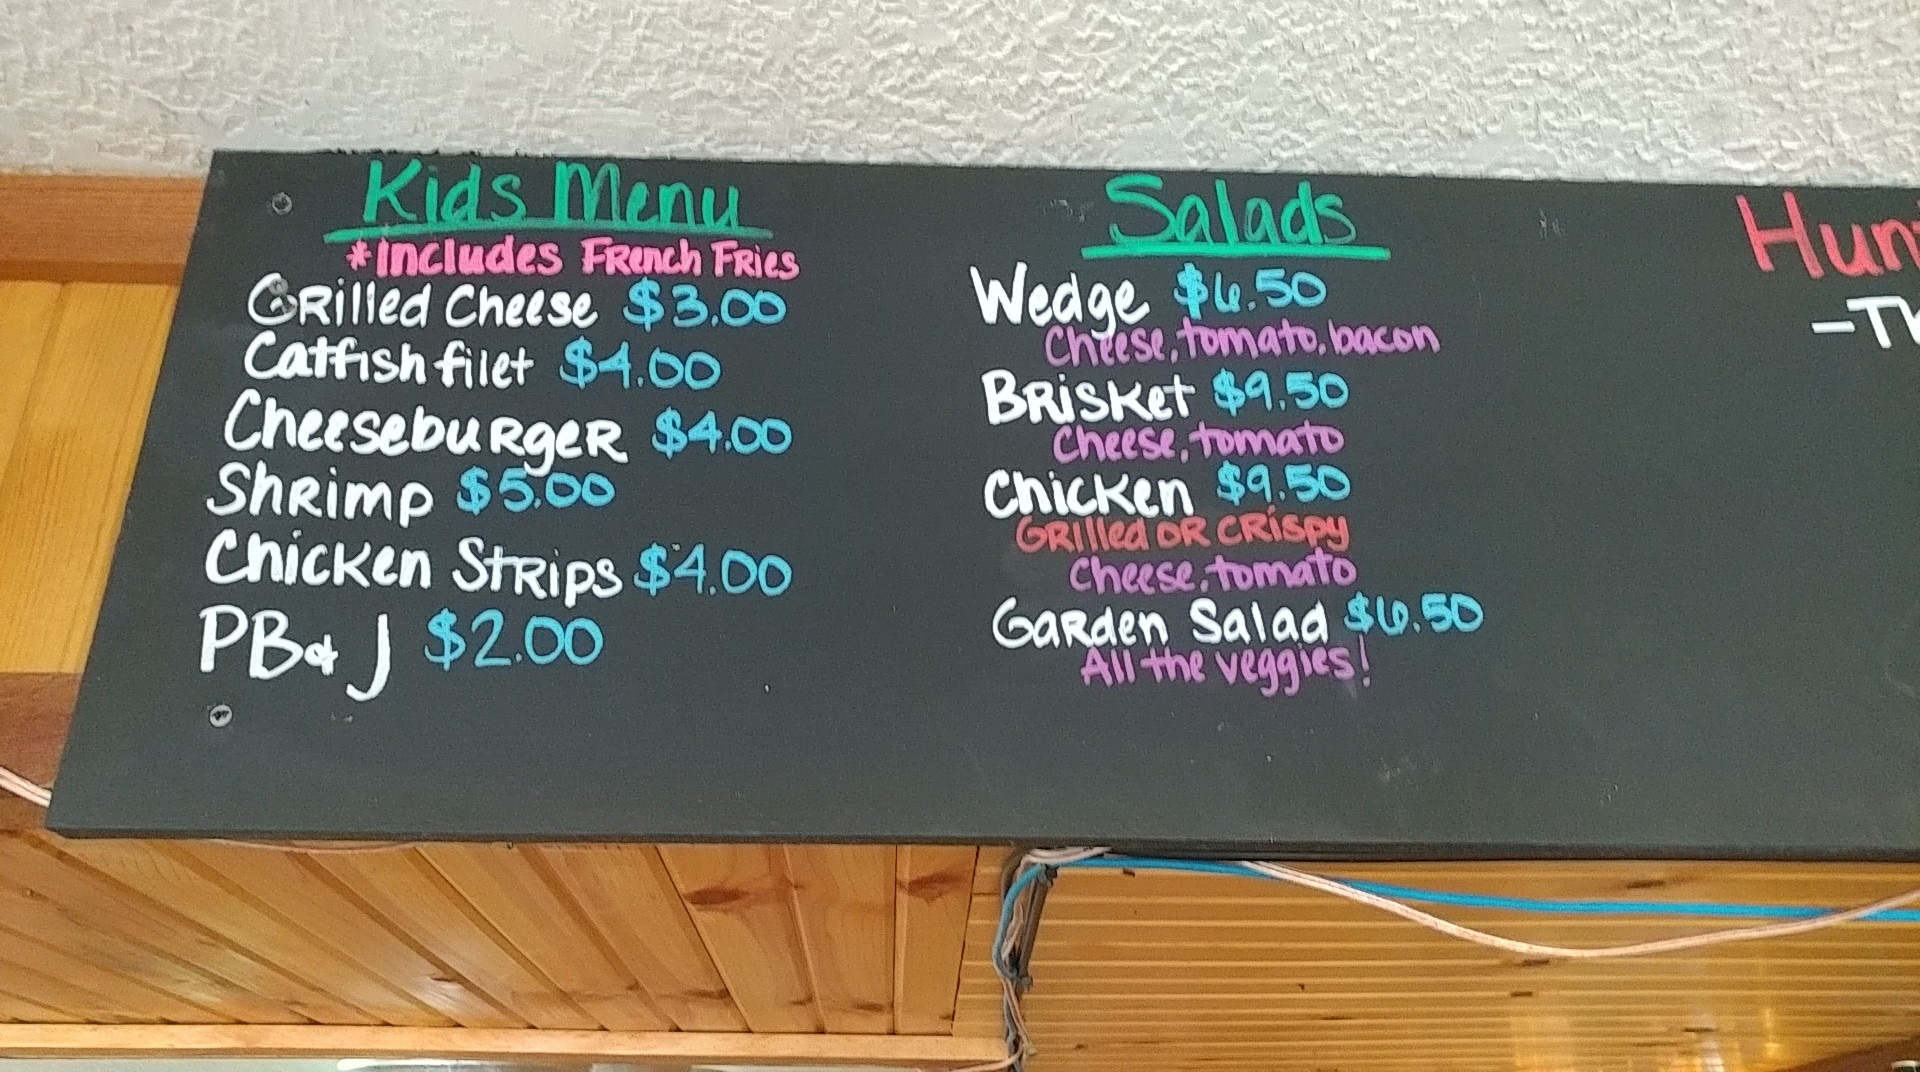 Kids Menu
*Includes French Fries
Grilled Cheese $3.00
Catfish filet $4.00
Cheeseburger $4.00
Shrimp $5.00
Chicken Strips $4.00
PB & J $2.00
Salads
Wedge $6.50
Cheese, tomato, bacon
Brisket $9.50
Cheese, tomato
Chicken $9.50
Grilled or Crispy
Cheese, tomato
Garden Salad $6.50
All the veggies!